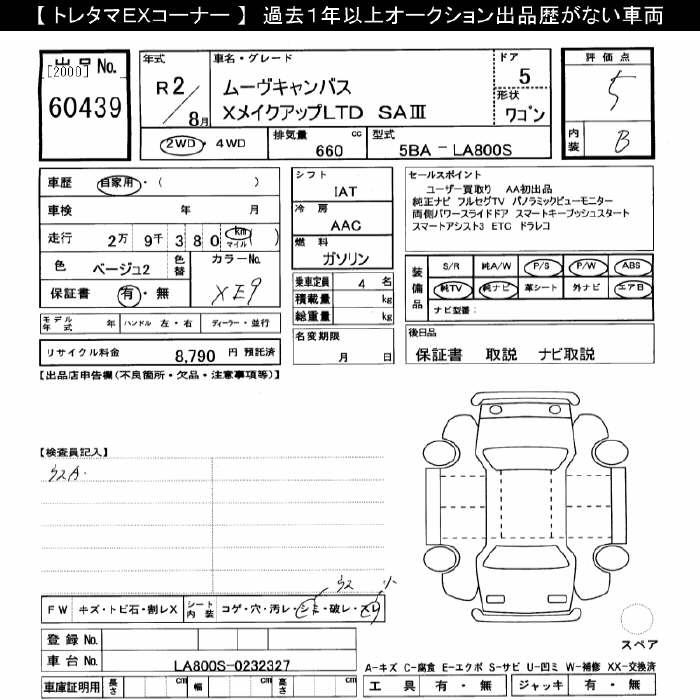 【 トレタマEXコーナー 】 過去１年以上オークション出品歴がない車両
出品 No.
[2000]
60439
年式
R 2／8月
車名・グレード
ムーヴキャンバス
XメイクアップLTD SAⅢ
ドア
5
形状
ワゴン
評価点
5
内装
B
2WD・4WD
排気量 cc
660
型式
5BA－LA800S
車歴 自家用・( )
車検 年 月
走行 2万 9千 3 8 0 km マイル ( )
色 ベージュ2
色替
カラーNo.
XE9
保証書 有・無
シフト
IAT
冷房
AAC
燃料
ガソリン
乗車定員 4 名
積載量 kg
総重量 kg
セールスポイント
ユーザー買取り AA初出品
純正ナビ フルセグTV パノラミックビューモニター
両側パワースライドドア スマートキープッシュスタート
スマートアシスト3 ETC ドラレコ
装備品
S/R 純A/W P/S P/W ABS
純TV 純ナビ 革シート 外ナビ エアB
ナビ型番：
モデル年式 年 ハンドル 左・右 ディーラー・並行
名変期限
月 日
後日品
保証書 取説 ナビ取説
リサイクル料金 8,790 円 預託済
【出品店申告欄(不良箇所・欠品・注意事項等)】
【検査員記入】
FW キズ・トビ石・割レX
シート内装 コゲ・穴・汚レ・シミ・破レ・スレ
小
登録 No.
車台 No. LA800S-0232327
車庫証明用 長さ cm 幅 cm 高さ cm
スペア
A-キズ C-腐食 E-エクボ S-サビ U-凹ミ W-補修 XX-交換済
工具 有・無 ジャッキ 有・無